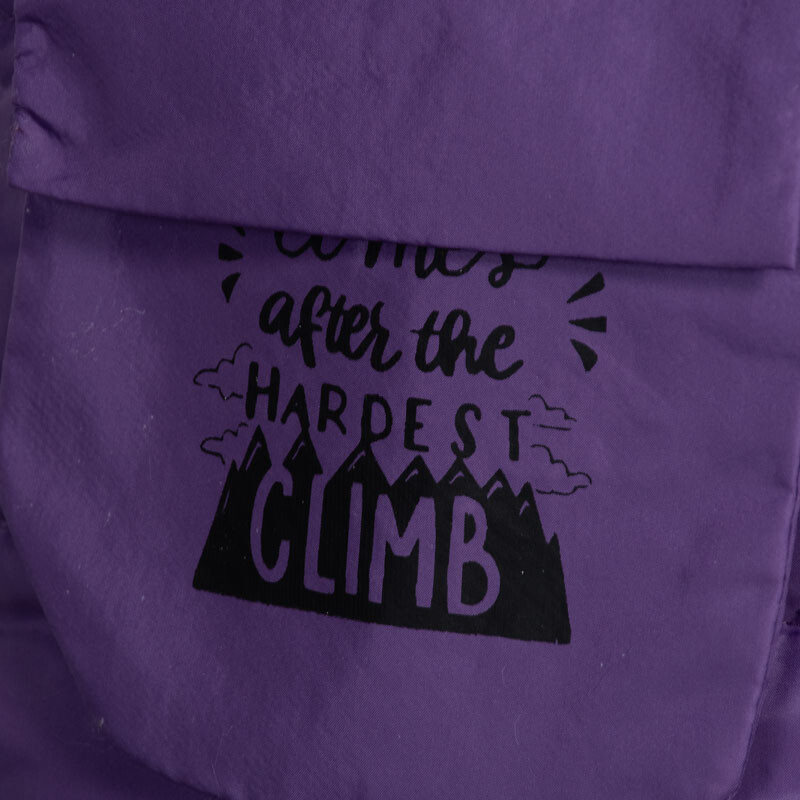 comes
after the
HARDEST
CLIMB